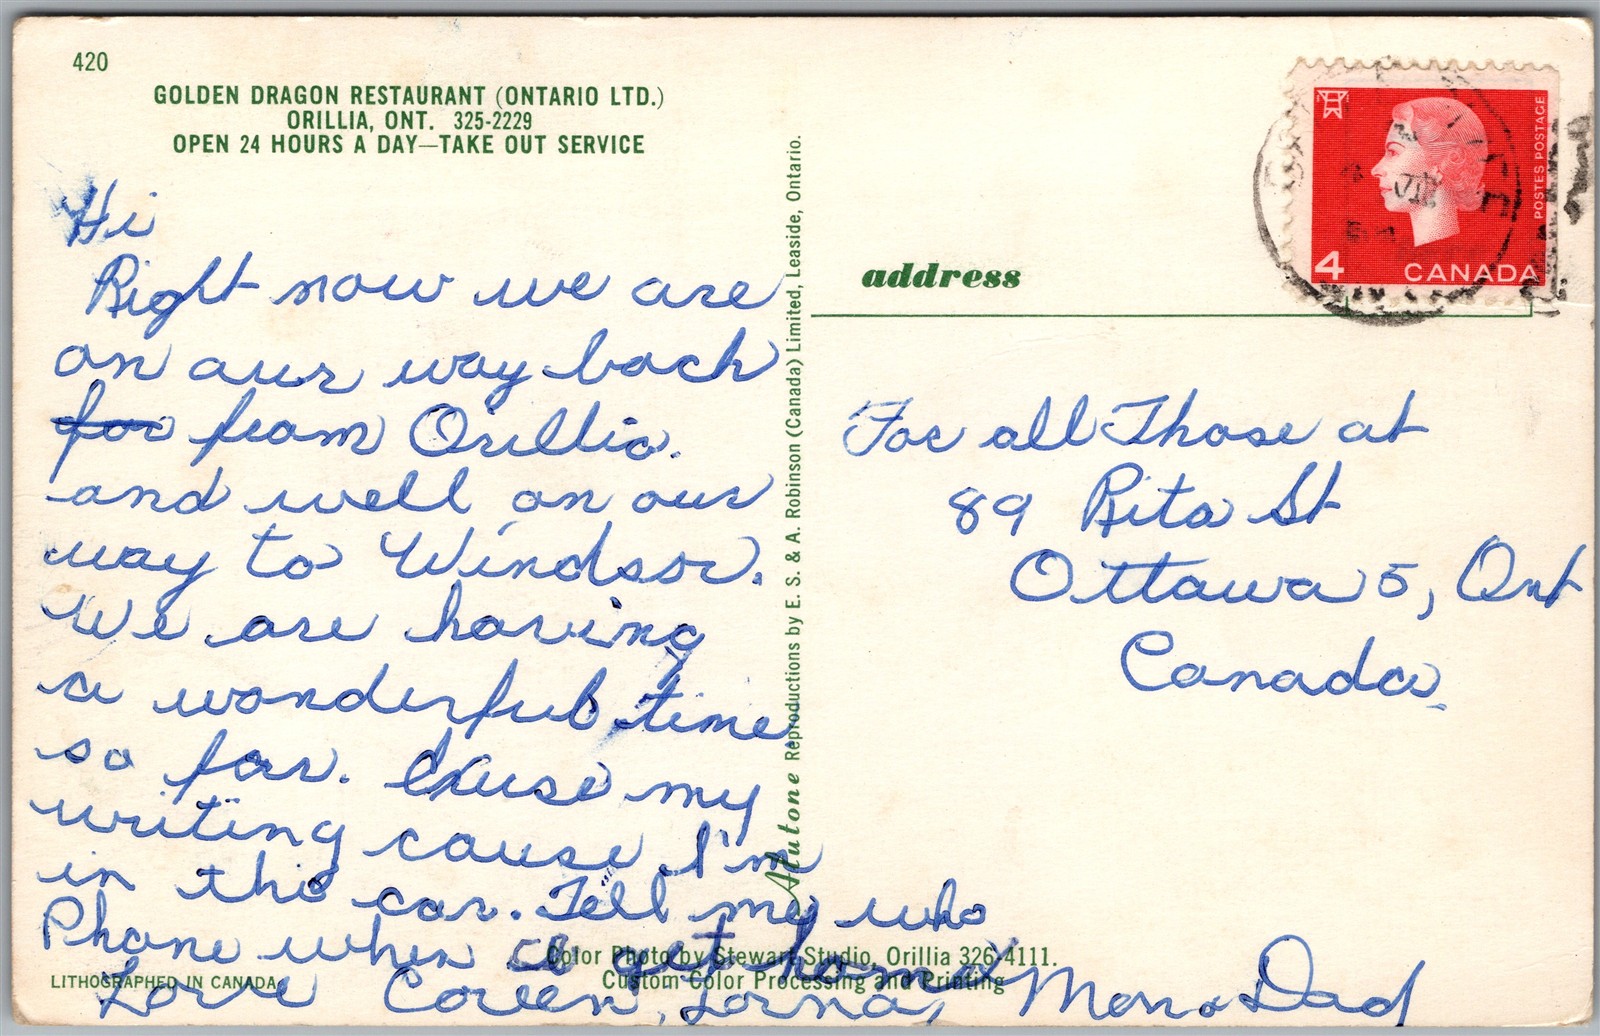 420
GOLDEN DRAGON RESTAURANT (ONTARIO LTD.)
ORILLIA, ONT. 325-2229
OPEN 24 HOURS A DAY—TAKE OUT SERVICE
Hi
Right now we are
on our way back
for from Orillia.
and well on our
way to Windsor.
We are having
a wonderful time
so far. Exuse my
writing cause I'm
in the car. Tell my who
Phone when I get home
Love Coreen, Lorna, Mom & Dad
LITHOGRAPHED IN CANADA
Color Photo by Stewart Studio, Orillia 326-4111.
Custom Color Processing and Printing
Autone Reproductions by E. S. & A. Robinson (Canada) Limited, Leaside, Ontario.
address
POSTES POSTAGE
4 CANADA
VII
For all Those at
89 Rita St
Ottawa 5, Ont
Canada.